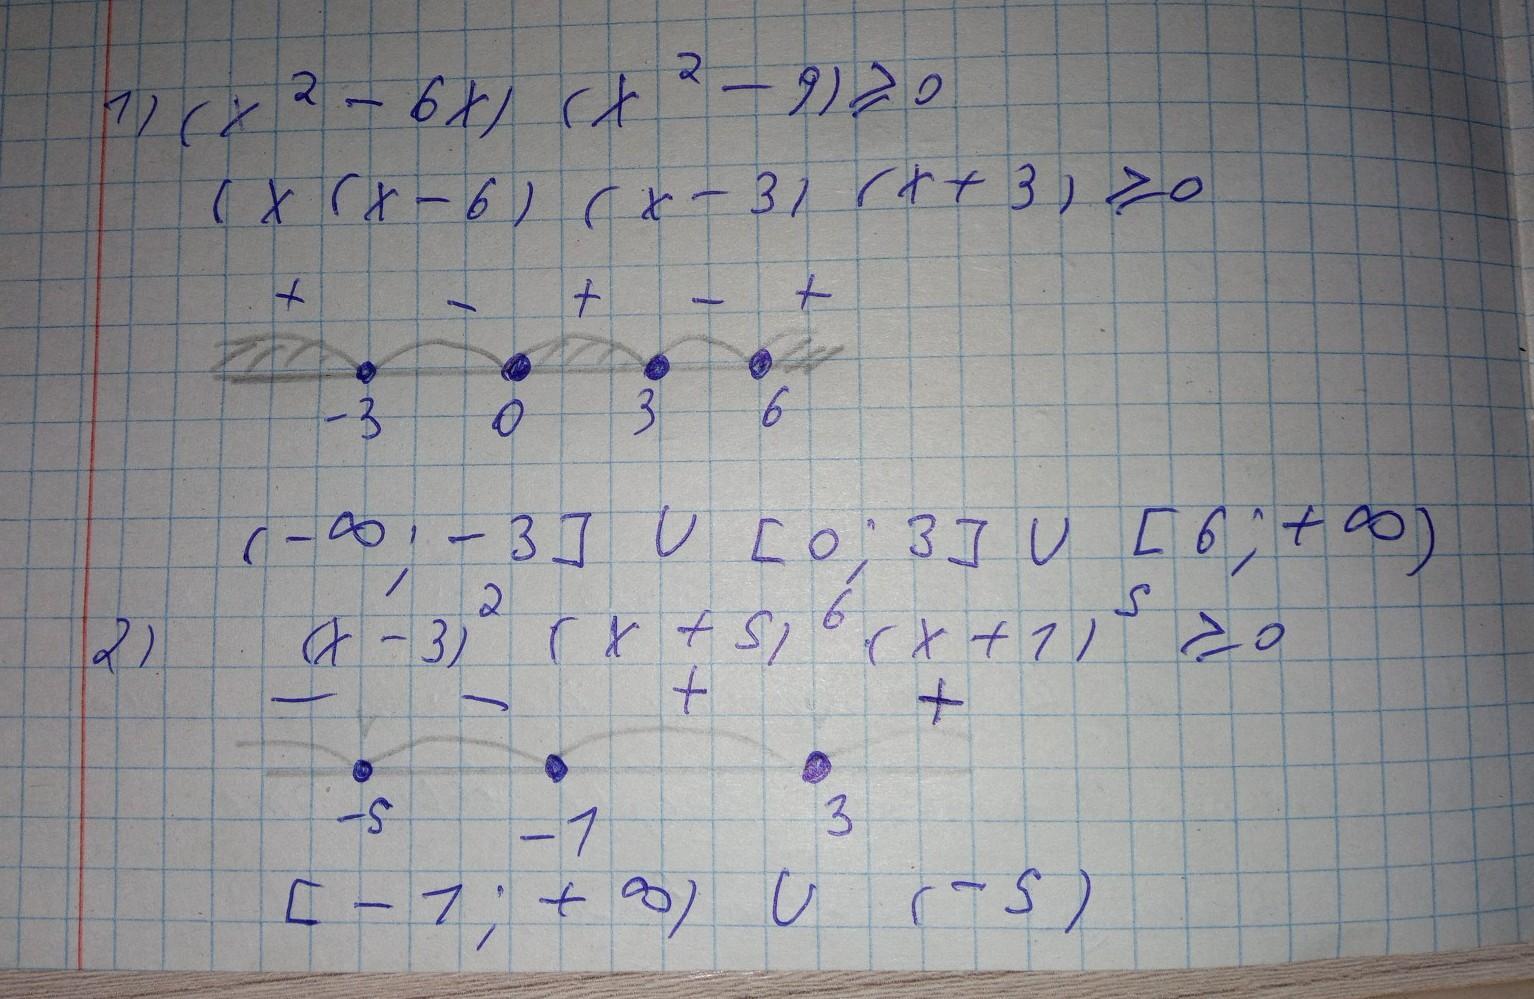 1) (x² - 6x) (x² - 9) ⩾ 0
(x (x - 6) (x - 3) (x + 3) ⩾ 0
+ - + - +
-3 0 3 6
(-∞; -3] ∪ [0; 3] ∪ [6; +∞)
2) (x - 3)² (x + 5)⁶ (x + 1)⁵ ⩾ 0
- - + +
-5 -1 3
[-1; +∞) ∪ (-5)